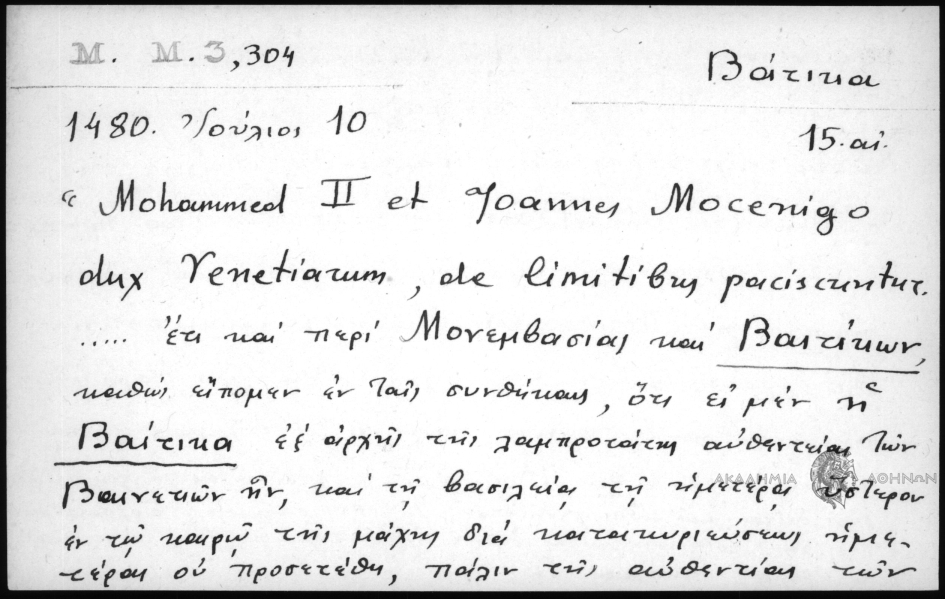 Μ. Μ. 3, 304
Βάτικα
1480. Ἰούλιος 10
15. αἰ.
“ Mohammed II et Joannes Mocenigo
dux Venetiarum, de limitibus paciscuntur.
..... ἔτι καί περί Μονεμβασίας καί Βαϊτίκων,
καθώς εἴπομεν ἐν ταῖς συνθήκαις, ὅτι εἰ μέν ἡ
Βαίτικα ἐξ ἀρχῆς τῆς λαμπροτάτης αὐθεντείας τῶν
Βαινετιῶν ἦν, καί τῇ βασιλείᾳ τῇ ἡμετέρᾳ ὕστερον
ἐν τῷ καιρῷ τῆς μάχης διά κατακυριεύσεως ἡμε-
τέρας οὐ προσετέθη, πάλιν τῆς αὐθεντίας τῶν
ΑΚΑΔΗΜΙΑ ΑΘΗΝΩΝ